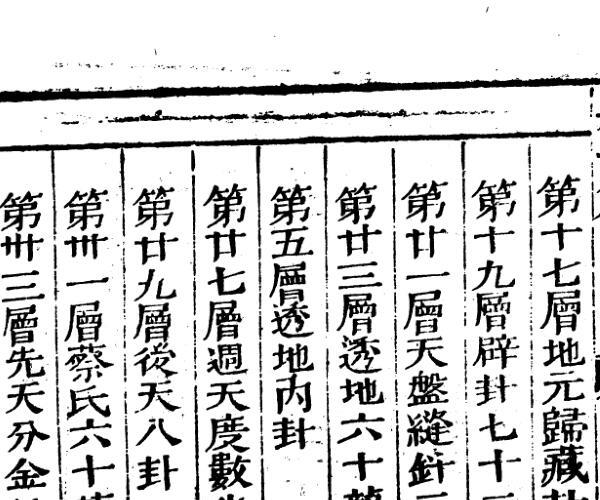 第十七層地元歸藏卦
第十九層辟卦七十二
第廿一層天盤縫針二
第廿三層透地六十龍
第五層透地內卦
第廿七層週天度數
第廿九層後天八卦
第卅一層蔡氏六十
第卅三層先天分金